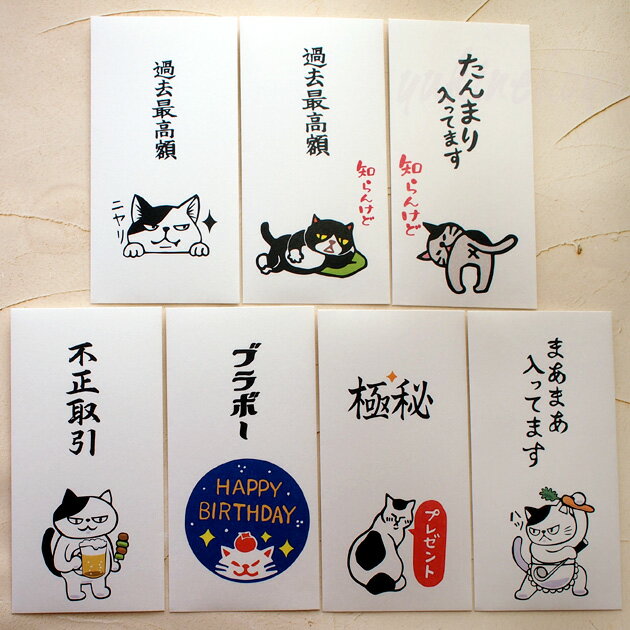 過去最高額
ニヤリ
過去最高額
知らんけど
たんまり
入ってます
知らんけど
不正取引
ブラボー
HAPPY
BIRTHDAY
極秘
プレゼント
まあまあ
入ってます